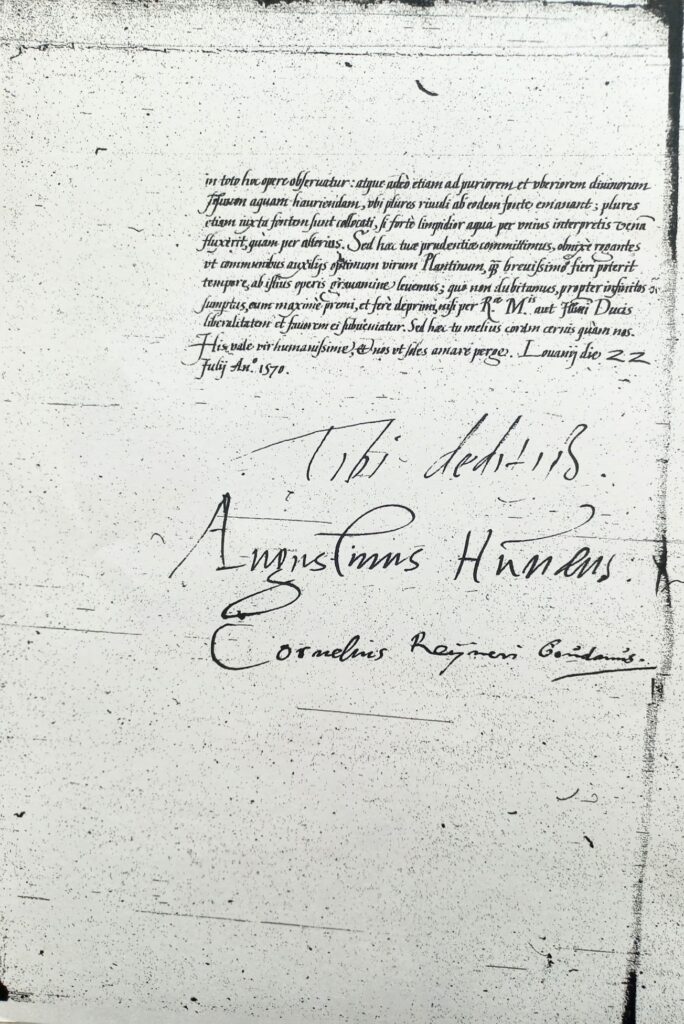 in toto hoc opere obseruatur: atque adeò etiam ad puriorem et vberiorem diuinorum
aquam hauriendam, vbi plures riuuli ab eodem fonte emanant; plures
etiam iuxta fontem sunt collocati, si forte limpidior aqua per vnius interpretis venā
fluxerit, quam per alterius. Sed haec tuæ prudentiæ committimus, obnixè rogantes
vt communibus auxilijs optimum virum Plantinum, breuissimo fieri poterit
tempore, ab istius operis grauamine leuemus; quē non dubitamus, propter infinitos
sumptus, eum maximè premi, et ferè deprimi, nisi per R.ae M.tis aut Ducis
liberalitatem et fauorem ei subueniatur. Sed haec tu melius coràm cernis quam nos.
His vale vir humanissime, & nos vt soles amare perge. Louanij die 22
Julij An.º 1570.
Tibi deditiss.
Augustinus Hunæus.
Cornelius Reyneri Goudanus.